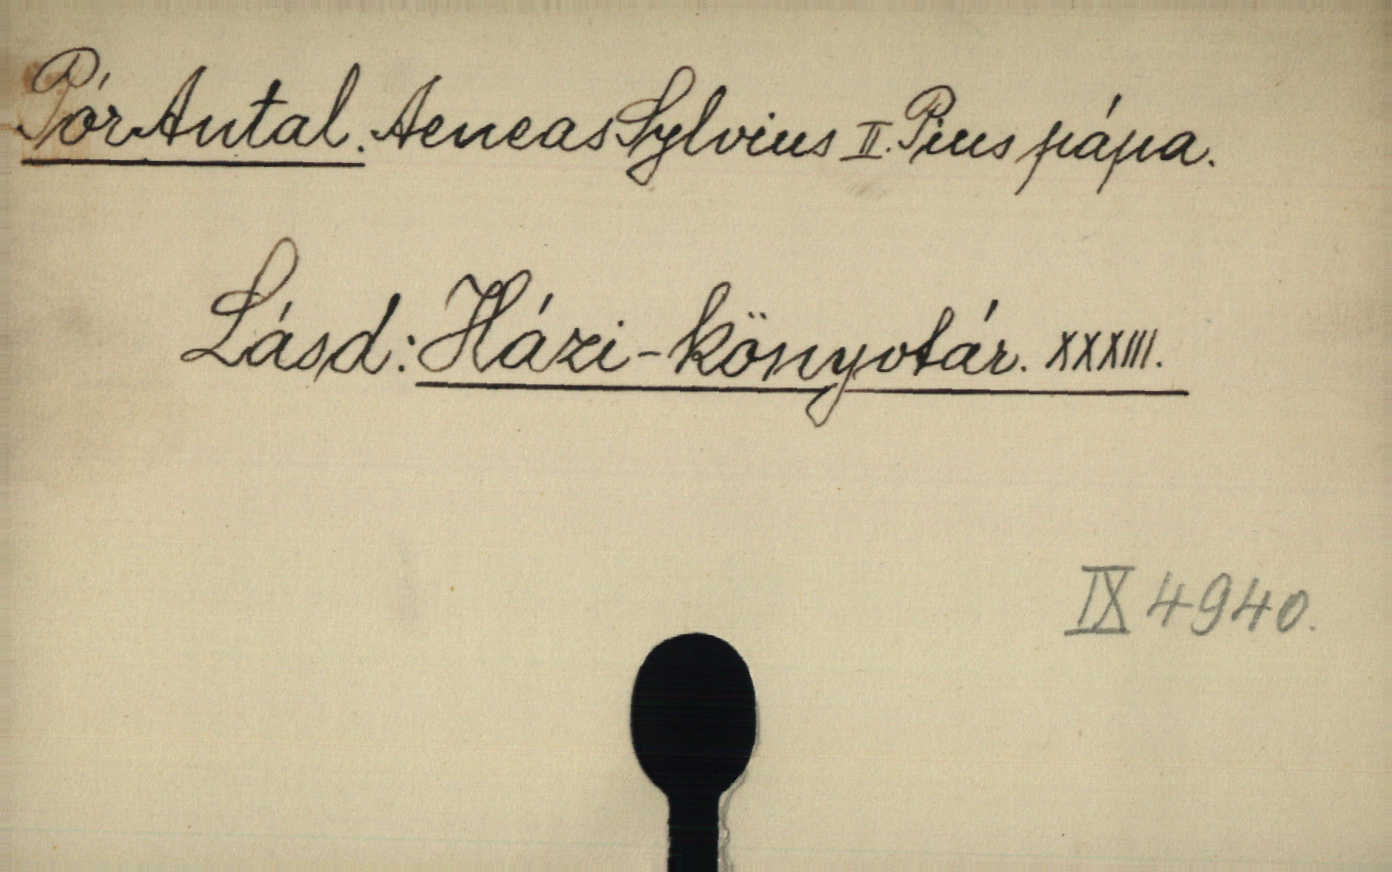 Pór Antal. Aeneas Sylvius II. Pius pápa.
Lásd: Házi-könyvtár. XXXIII.
IX 4940.